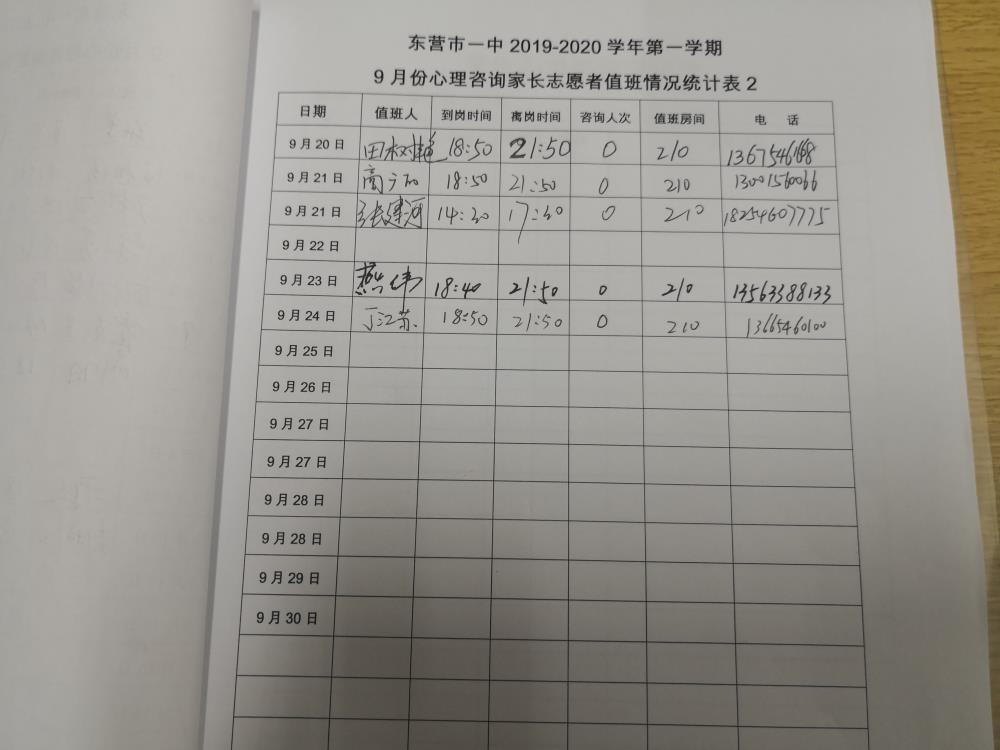 东营市一中 2019-2020 学年第一学期
9 月份心理咨询家长志愿者值班情况统计表 2
日期 值班人 到岗时间 离岗时间 咨询人次 值班房间 电 话
9 月 20 日 田树艳 18:50 21:50 0 210
9 月 21 日 18:50 21:50 0 210 13001560066
9 月 21 日 张建河 14:30 17:30 0 210 18254607775
9 月 22 日
9 月 23 日 燕伟 18:40 21:50 0 210 13563388133
9 月 24 日 丁江苏 18:50 21:50 0 210 13665460100
9 月 25 日
9 月 26 日
9 月 27 日
9 月 27 日
9 月 28 日
9 月 28 日
9 月 29 日
9 月 30 日